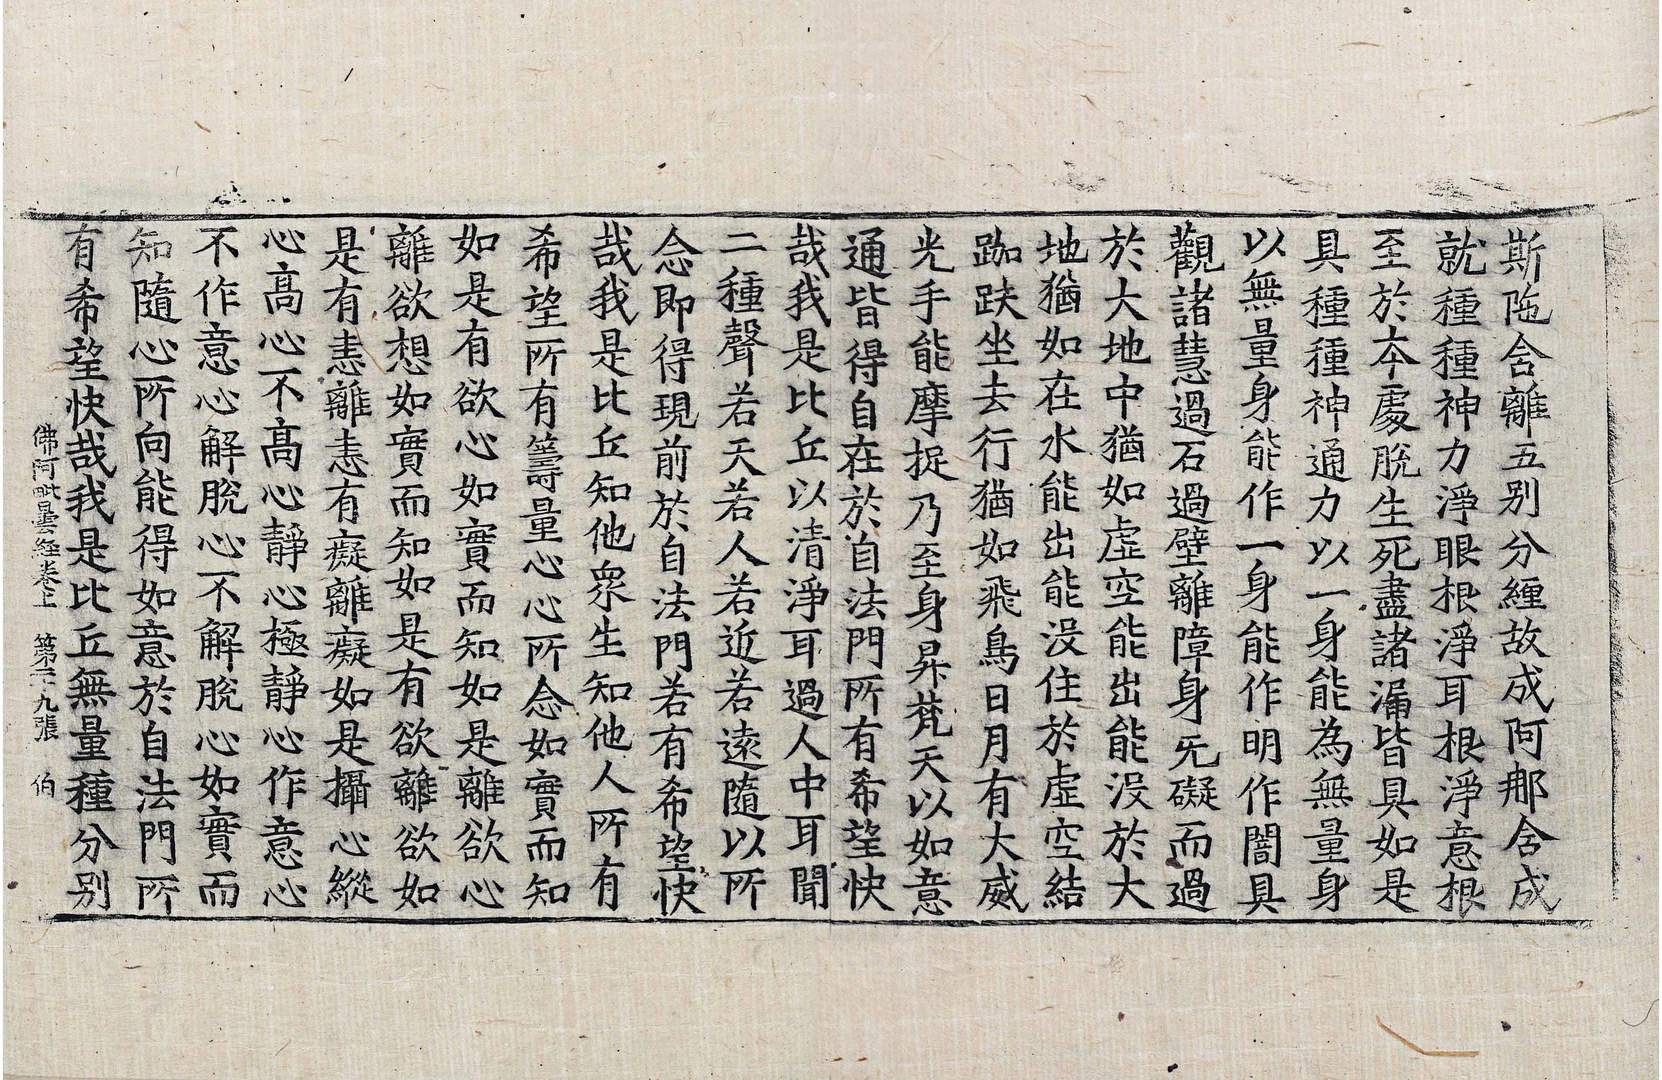 斯陁含離五别分纏故成阿那含成
就種種神力淨眼根淨耳根淨意根
至於夲處脫生死盡諸漏皆具如是
具種種神通力以一身能為無量身
以無量身能作一身能作明作闇具
觀諸慧過石過壁離障身旡礙而過
於大地中猶如虛空能出能沒於大
地猶如在水能出能没住於虛空結
跏趺坐去行猶如飛鳥日月有大威
光手能摩捉乃至身昇梵天以如意
通皆得自在於自法門所有希望快
哉我是比丘以清淨耳過人中耳聞
二種聲若天若人若近若遠隨以所
念即得現前於自法門若有希望快
哉我是比丘知他衆生知他人所有
希望所有籌量心心所念如實而知
如是有欲心如實而知如是離欲心
離欲想如實而知如是有欲離欲如
是有恚離恚有癡離癡如是攝心縱
心高心不高心靜心極靜心作意心
不作意心解脫心不解脫心如實而
知隨心所向能得如意於自法門所
有希望快哉我是比丘無量種分别
佛阿毗曇經卷上 第二十九張 伯